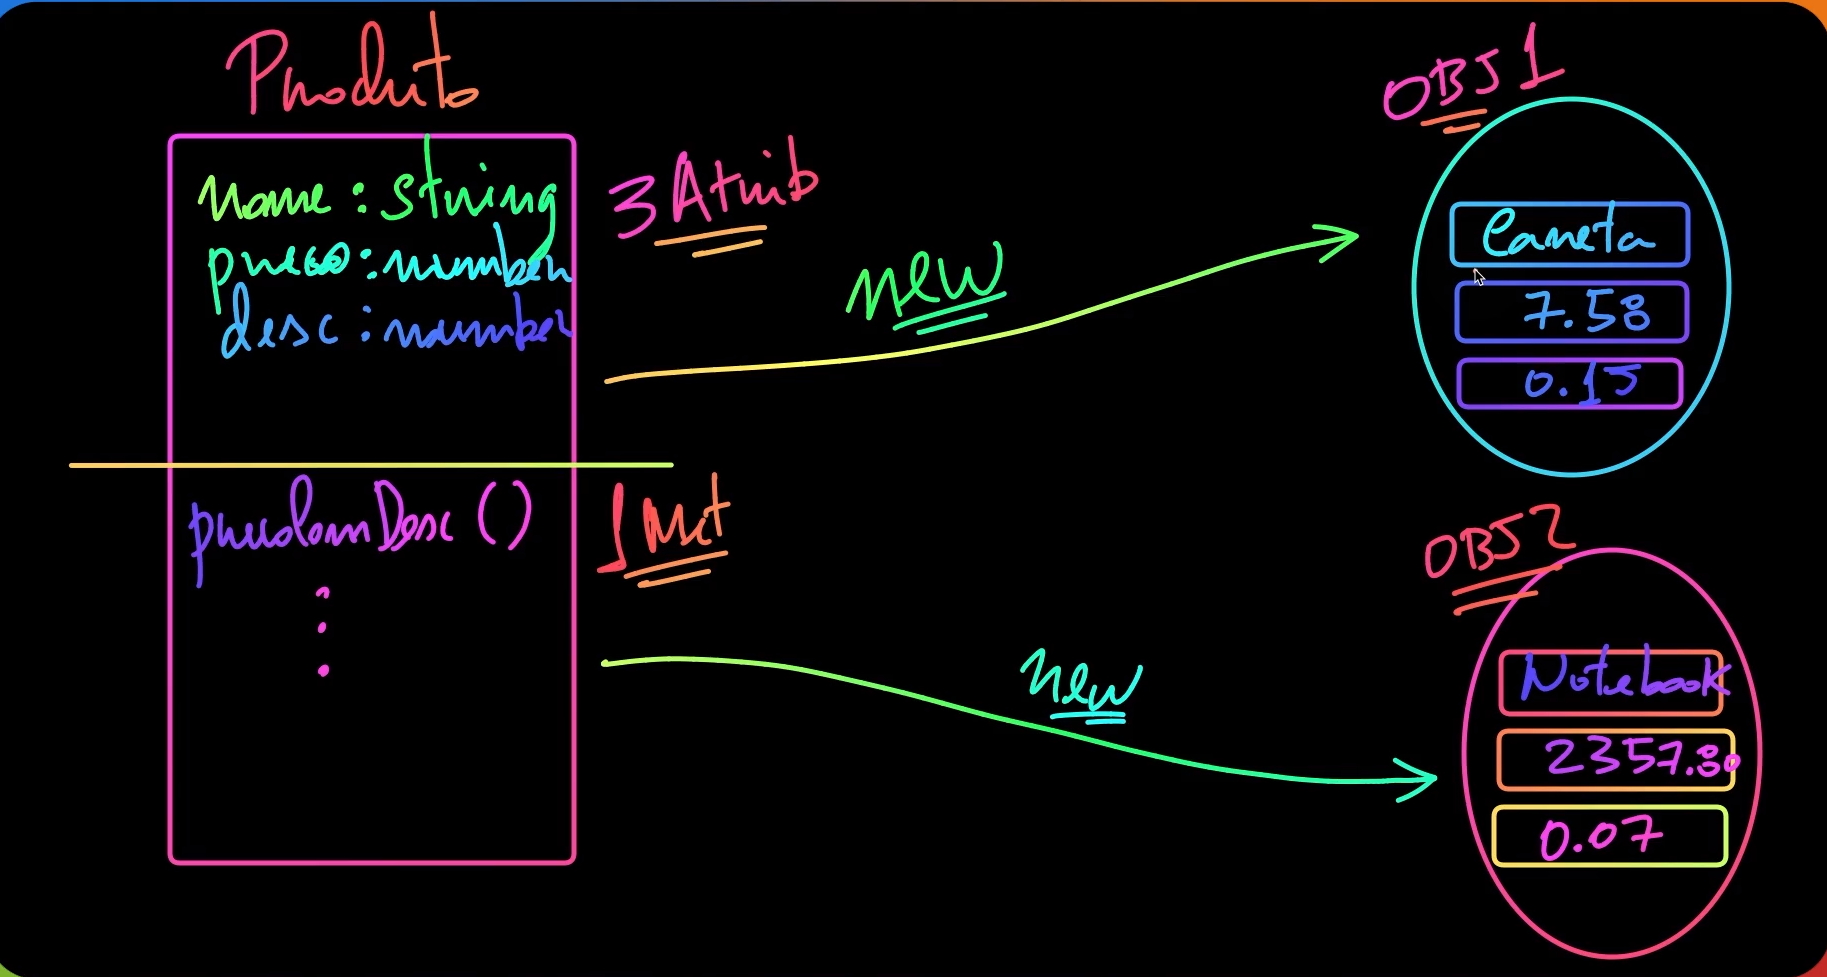 Produto
nome : string
preco : number
desc : number
3 Atrib
precoComDesc ()
1 Met
new
new
OBJ 1
Caneta
7.58
0.15
OBJ 2
Notebook
2357.80
0.07